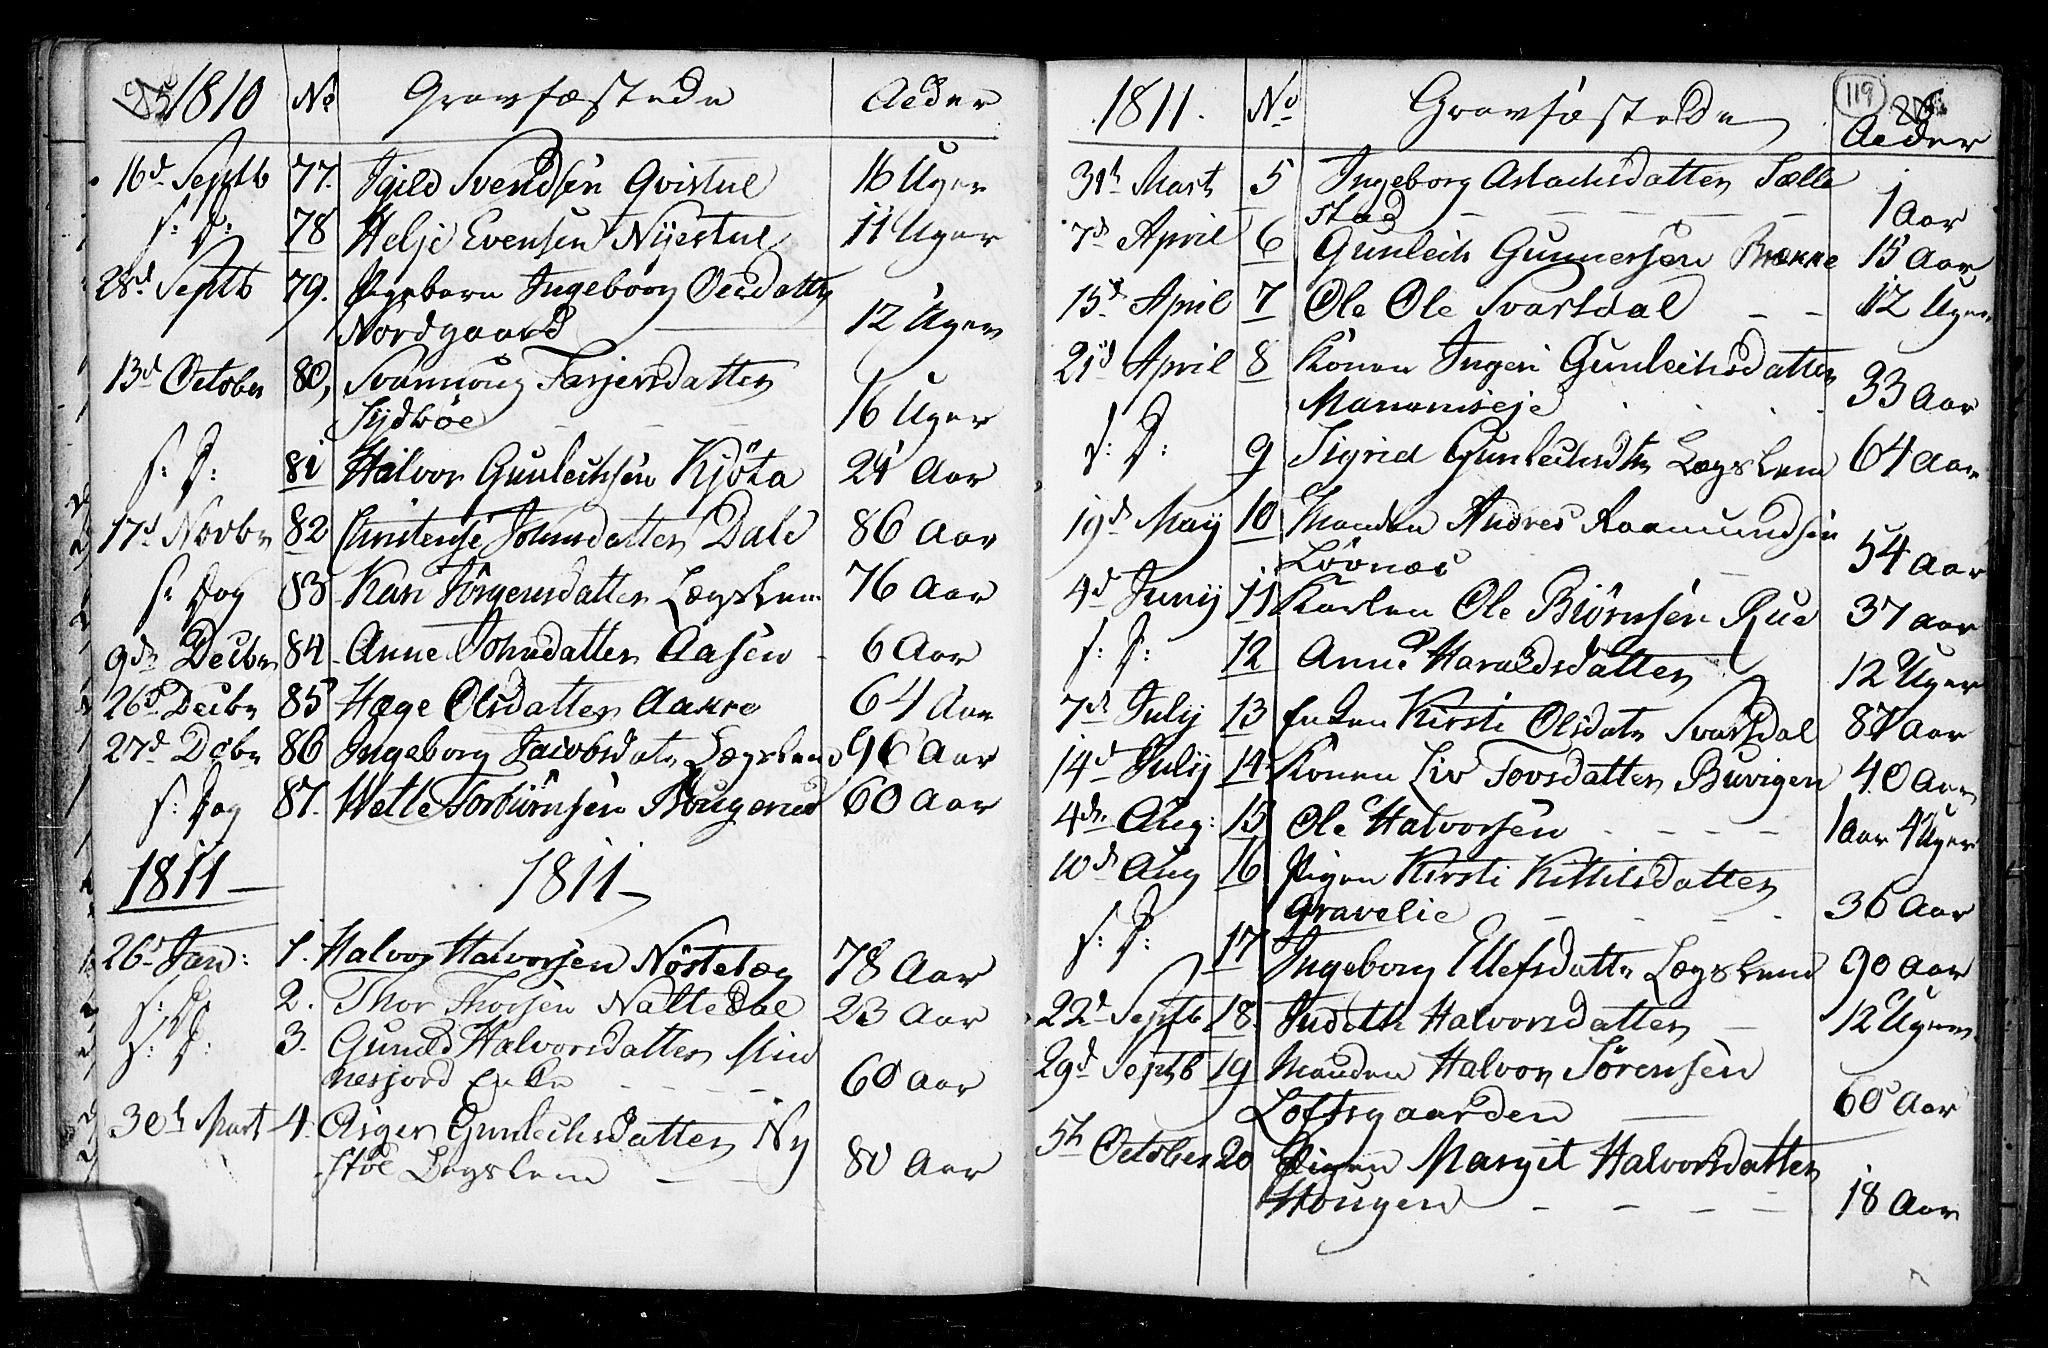 1810 No Gravfæstede Alder
16d Septb 77. Kjeld Svendsen Qvistul 16 Uger
s: D: 78 Helje Evensen Nyestul 11 Uger
28d Septb 79. Pigebarn Ingeborg Olsdatter
Nordgaard 12 Uger
13d October 80, Svannoug Tarjersdatter
Sydbøe - - - 16 Uger
s: D: 81 Halvor Gunleichsen Kjöta 24 Aar
17d Novbr 82 Christense Johnsdatter Dale 86 Aar
s: Dag 83 Kari Jörgensdatter Lægslem 76 Aar
9d Decbr 84 Anne Johnsdatter Aasen - 6 Aar
26d Decbr 85 Hæge Olsdatter Aakre 64 Aar
27d Debr 86 Ingeborg Jacobsdatr Lægslem 96 Aar
s: Dag 87. Wetle Torbiörnsen Hougerud 60 Aar
1811 - 1811 -
26d Jan: 1. Halvor Halvorsen Nöstebæ 78 Aar
s: D: 2. Thor Thorsen Nattedal 23 Aar
s: D: 3. Guned Halvorsdatter Min
nesjord Enke - - - - 60 Aar
30th Mart 4. Asger Gunleichsdatter Ny
støe Legslem - - 80 Aar
119
1811. No Gravfæstede 86
Alder
31th Mart 5 Ingeborg Aslachsdatter Sælle
stad - - - - - 1 Aar
7d April 6 Gunleich Gunnersen Brække 15 Aar
15d April 7 Ole Ole Svartdal - - 12 Uger
21d April 8 Konen Ingeri Gunleichsdatter
Manomseje . . . . 33 Aar
s: D: 9 Sigrid Gunleichsdtr Lægslem 64 Aar
19d May 10 Manden Andres Aamundsen
Löönæs 54 Aar
4d Juny 11 Karlen Ole Biörnsen Rue 37 aar
s: D: 12 Anne Haraldsdatter 12 Uger
7d July 13 Enken Kirsti Olsdatr Svartdal 87 Aar
14d July 14 Konen Liv Tovsdatter Buvigen 40 Aar
4d Aug: 15 Ole Halvorsen - - - - 1 aar 4 Uger
10d Aug 16 Pigen Kirsti Kittilsdatter
Gravelie - - - - 36 Aar
s: D: 17 Ingeborg Ellefsdattr Lægslem 90 Aar
22d Septb 18. Judith Halvorsdatter - 12 Uger
29d Septb 19 Manden Halvor Sörensen
Loftsgaarden - 60 Aar
5th October 20 Pigen Margit Halvorsdatter
Hougen - - - - 18 Aar